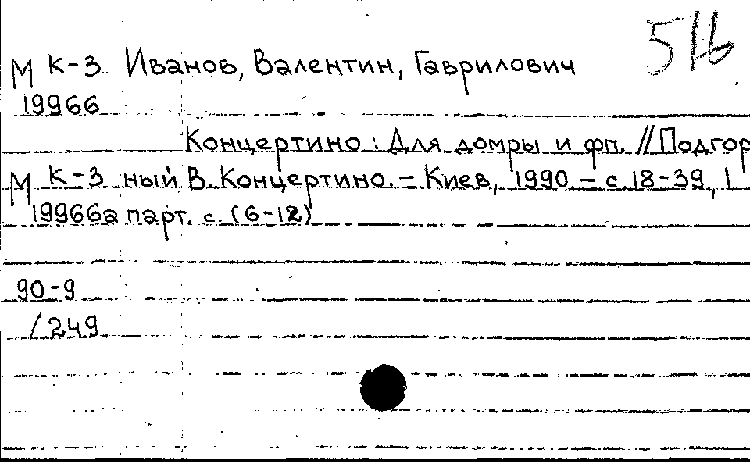 516
М К-3 Иванов, Валентин, Гаврилович
19966
Концертино: Для домры и фп. // Подгор
М К-3 ный В. Концертино. - Киев, 1990 - с. 18-39, 1
19966а парт. с. (6-12)
90-9
/249